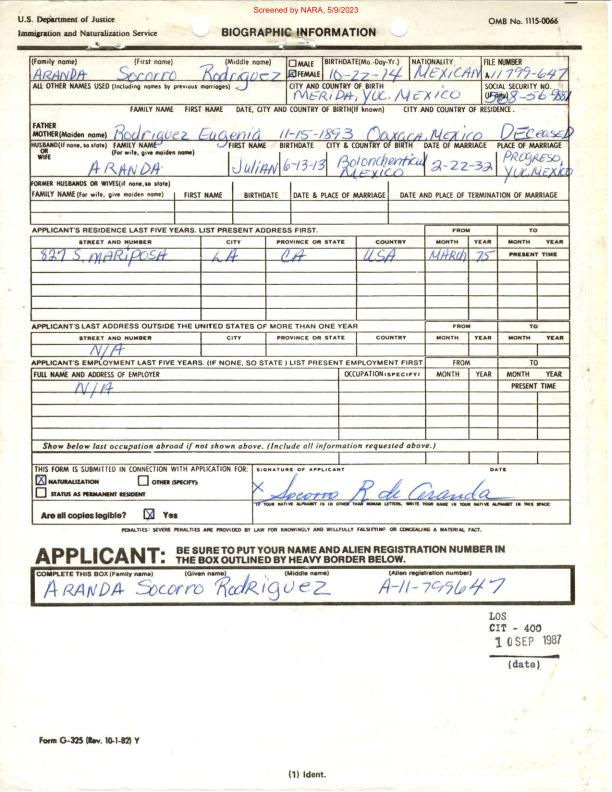 Screened by NARA, 5/9/2023
U.S. Department of Justice
OMB No. 1115-0066
Immigration and Naturalization Service
BIOGRAPHIC INFORMATION
(Family name) (First name) (Middle name) MALE BIRTHDATE(Mo.-Day-Yr.) NATIONALITY FILE NUMBER
ARANDA Socorro Rodriguez X FEMALE 10-27-14 MEXICAN A11 799-647
ALL OTHER NAMES USED (Including names by previous marriages) CITY AND COUNTRY OF BIRTH SOCIAL SECURITY NO.
MERIDA, YUC. MEXICO (If any)
FAMILY NAME FIRST NAME DATE, CITY AND COUNTRY OF BIRTH(If known) CITY AND COUNTRY OF RESIDENCE.
FATHER
MOTHER(Maiden name) Rodriguez Eugenia 11-15-1893 Oaxaca, Mexico DECeased
HUSBAND(If none, so state) FAMILY NAME FIRST NAME BIRTHDATE CITY & COUNTRY OF BIRTH DATE OF MARRIAGE PLACE OF MARRIAGE
OR (For wife, give maiden name)
WIFE
ARANDA Julian 6-13-13 Bolonchentical MEXICO 2-22-32 PROGRESO, YUC. MEXICO
FORMER HUSBANDS OR WIVES(if none, so state)
FAMILY NAME (For wife, give maiden name) FIRST NAME BIRTHDATE DATE & PLACE OF MARRIAGE DATE AND PLACE OF TERMINATION OF MARRIAGE
APPLICANT'S RESIDENCE LAST FIVE YEARS. LIST PRESENT ADDRESS FIRST. FROM TO
STREET AND NUMBER CITY PROVINCE OR STATE COUNTRY MONTH YEAR MONTH YEAR
827 S. MARIPOSA LA CA USA MARCH 75 PRESENT TIME
APPLICANT'S LAST ADDRESS OUTSIDE THE UNITED STATES OF MORE THAN ONE YEAR FROM TO
STREET AND NUMBER CITY PROVINCE OR STATE COUNTRY MONTH YEAR MONTH YEAR
N/A
APPLICANT'S EMPLOYMENT LAST FIVE YEARS. (IF NONE, SO STATE) LIST PRESENT EMPLOYMENT FIRST FROM TO
FULL NAME AND ADDRESS OF EMPLOYER OCCUPATION(SPECIFY) MONTH YEAR MONTH YEAR
N/A PRESENT TIME
Show below last occupation abroad if not shown above. (Include all information requested above.)
THIS FORM IS SUBMITTED IN CONNECTION WITH APPLICATION FOR: SIGNATURE OF APPLICANT DATE
X NATURALIZATION OTHER (SPECIFY):
STATUS AS PERMANENT RESIDENT
X Socorro R de Aranda
IF YOUR NATIVE ALPHABET IS IN OTHER THAN ROMAN LETTERS, WRITE YOUR NAME IN YOUR NATIVE ALPHABET IN THIS SPACE:
Are all copies legible? X Yes
PENALTIES: SEVERE PENALTIES ARE PROVIDED BY LAW FOR KNOWINGLY AND WILLFULLY FALSIFYING OR CONCEALING A MATERIAL FACT.
APPLICANT: BE SURE TO PUT YOUR NAME AND ALIEN REGISTRATION NUMBER IN
THE BOX OUTLINED BY HEAVY BORDER BELOW.
COMPLETE THIS BOX (Family name) (Given name) (Middle name) (Alien registration number)
ARANDA Socorro Rodriguez A-11-799647
LOS
CIT - 400
10 SEP 1987
(date)
Form G-325 (Rev. 10-1-82) Y
(1) Ident.